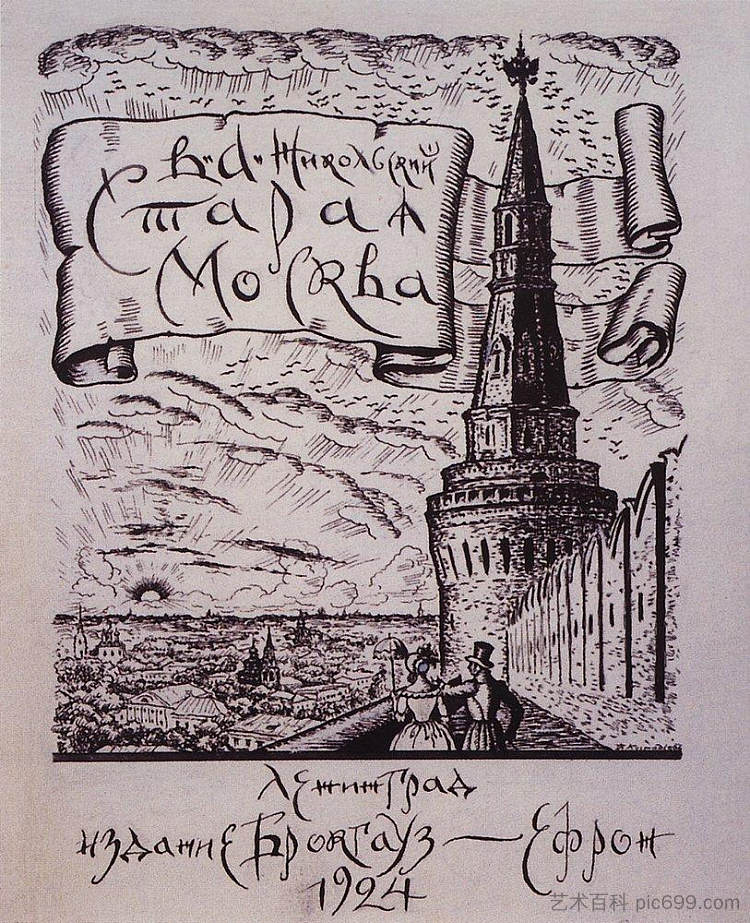 В. А. Никольский
Старая
Москва
Ленинград
издание Брокгауз — Ефрон
1924
艺术百科 pic699.com